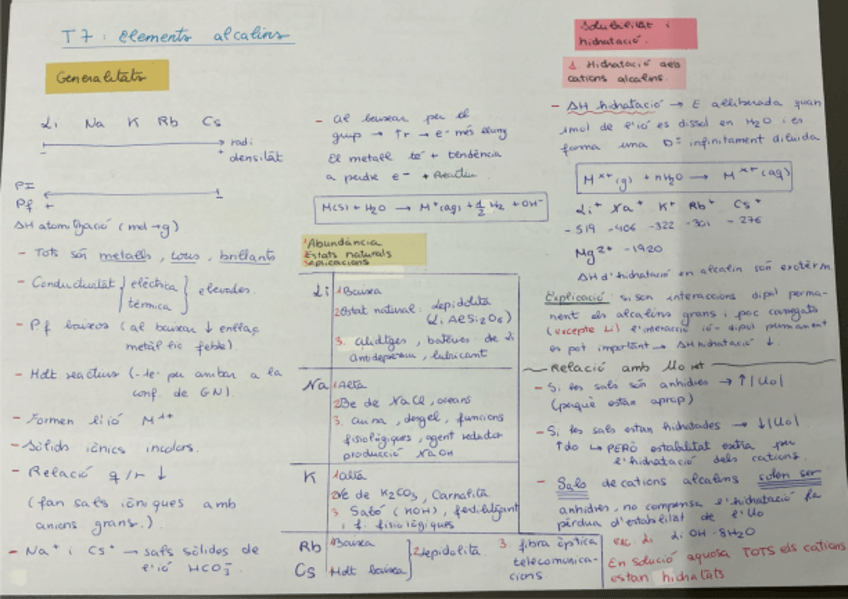 T7: Elements alcalins
Generalitats
Li Na K Rb Cs
radi
densitat
PI
Pf
ΔH atomització (md → g)
- Tots són metalls, tous, brillants
- Conductivitat { elèctrica
tèrmica } elevades.
- Pf baixos (al baixar ↓ enllaç
metàl·lic feble).
- Molt reactius (-1e⁻ per arribar a la
conf. de GN).
- Formen l'ió M¹⁺
- Sòlids iònics incolors.
- Relació q/r ↓
(fan sals iòniques amb
anions grans.).
- Na⁺ i Cs⁺ → sals sòlides de
l'ió HCO₃⁻.
- Al baixar per el
grup → ↑r → e⁻ més lluny
El metall té + tendència
a perdre e⁻ + Reactiu
M(s) + H₂O → M⁺(aq) + ½ H₂ + OH⁻
1 Abundància
Estats naturals
3 aplicacions
Li 1 Baixa
2 Estat natural: Lepidolita
(LiAlSi₂O₆)
3. aliatges, bateries de Li
antidepressiu, lubricant
Na 1 Alta
2 Be de NaCl, oceans
3. cuina, desgel, funcions
fisiològiques, agent reductor
producció NaOH
K 1 alta
2 Ve de K₂CO₃, Carnalita
3 Sabó (KOH), fertilitzant
i f. fisiològiques
Rb Baixa
Cs Molt baixa } 2 lepidolita. 3. fibra òptica
telecomunica-
cions
Solubilitat i
hidratació.
1. Hidratació dels
cations alcalins.
- ΔH hidratació → E alliberada quan
1mol de l'ió es dissol en H₂O i es
forma una D= infinitament diluida
Mˣ⁺(g) + nH₂O → Mˣ⁺(aq)
Li⁺ Na⁺ K⁺ Rb⁺ Cs⁺
-519 -406 -322 -301 -276
Mg²⁺ -1920
ΔH d'hidratació en alcalin són exotèrm
Explicació: si son interaccions dipol perma-
nent els alcalins grans i poc carregats
(excepte Li) l'interacció ió-dipol permanent
es pot important → ΔH hidratació ↓.
Relació amb Uo ret
- Si les sals són anhidres → ↑|Uo|
(perquè estan aprop)
- Si les sals estan hidratades → ↓|Uo|
↑do ↳ PERÒ estabilitat extra per
l'hidratació dels cations.
- Sals de cations alcalins solen ser
anhidres, no compensa l'hidratació la
pèrdua d'estabilitat de l'Uo
exc. Li LiOH·8H₂O
En solució aquosa TOTS els cations
estan hidratats